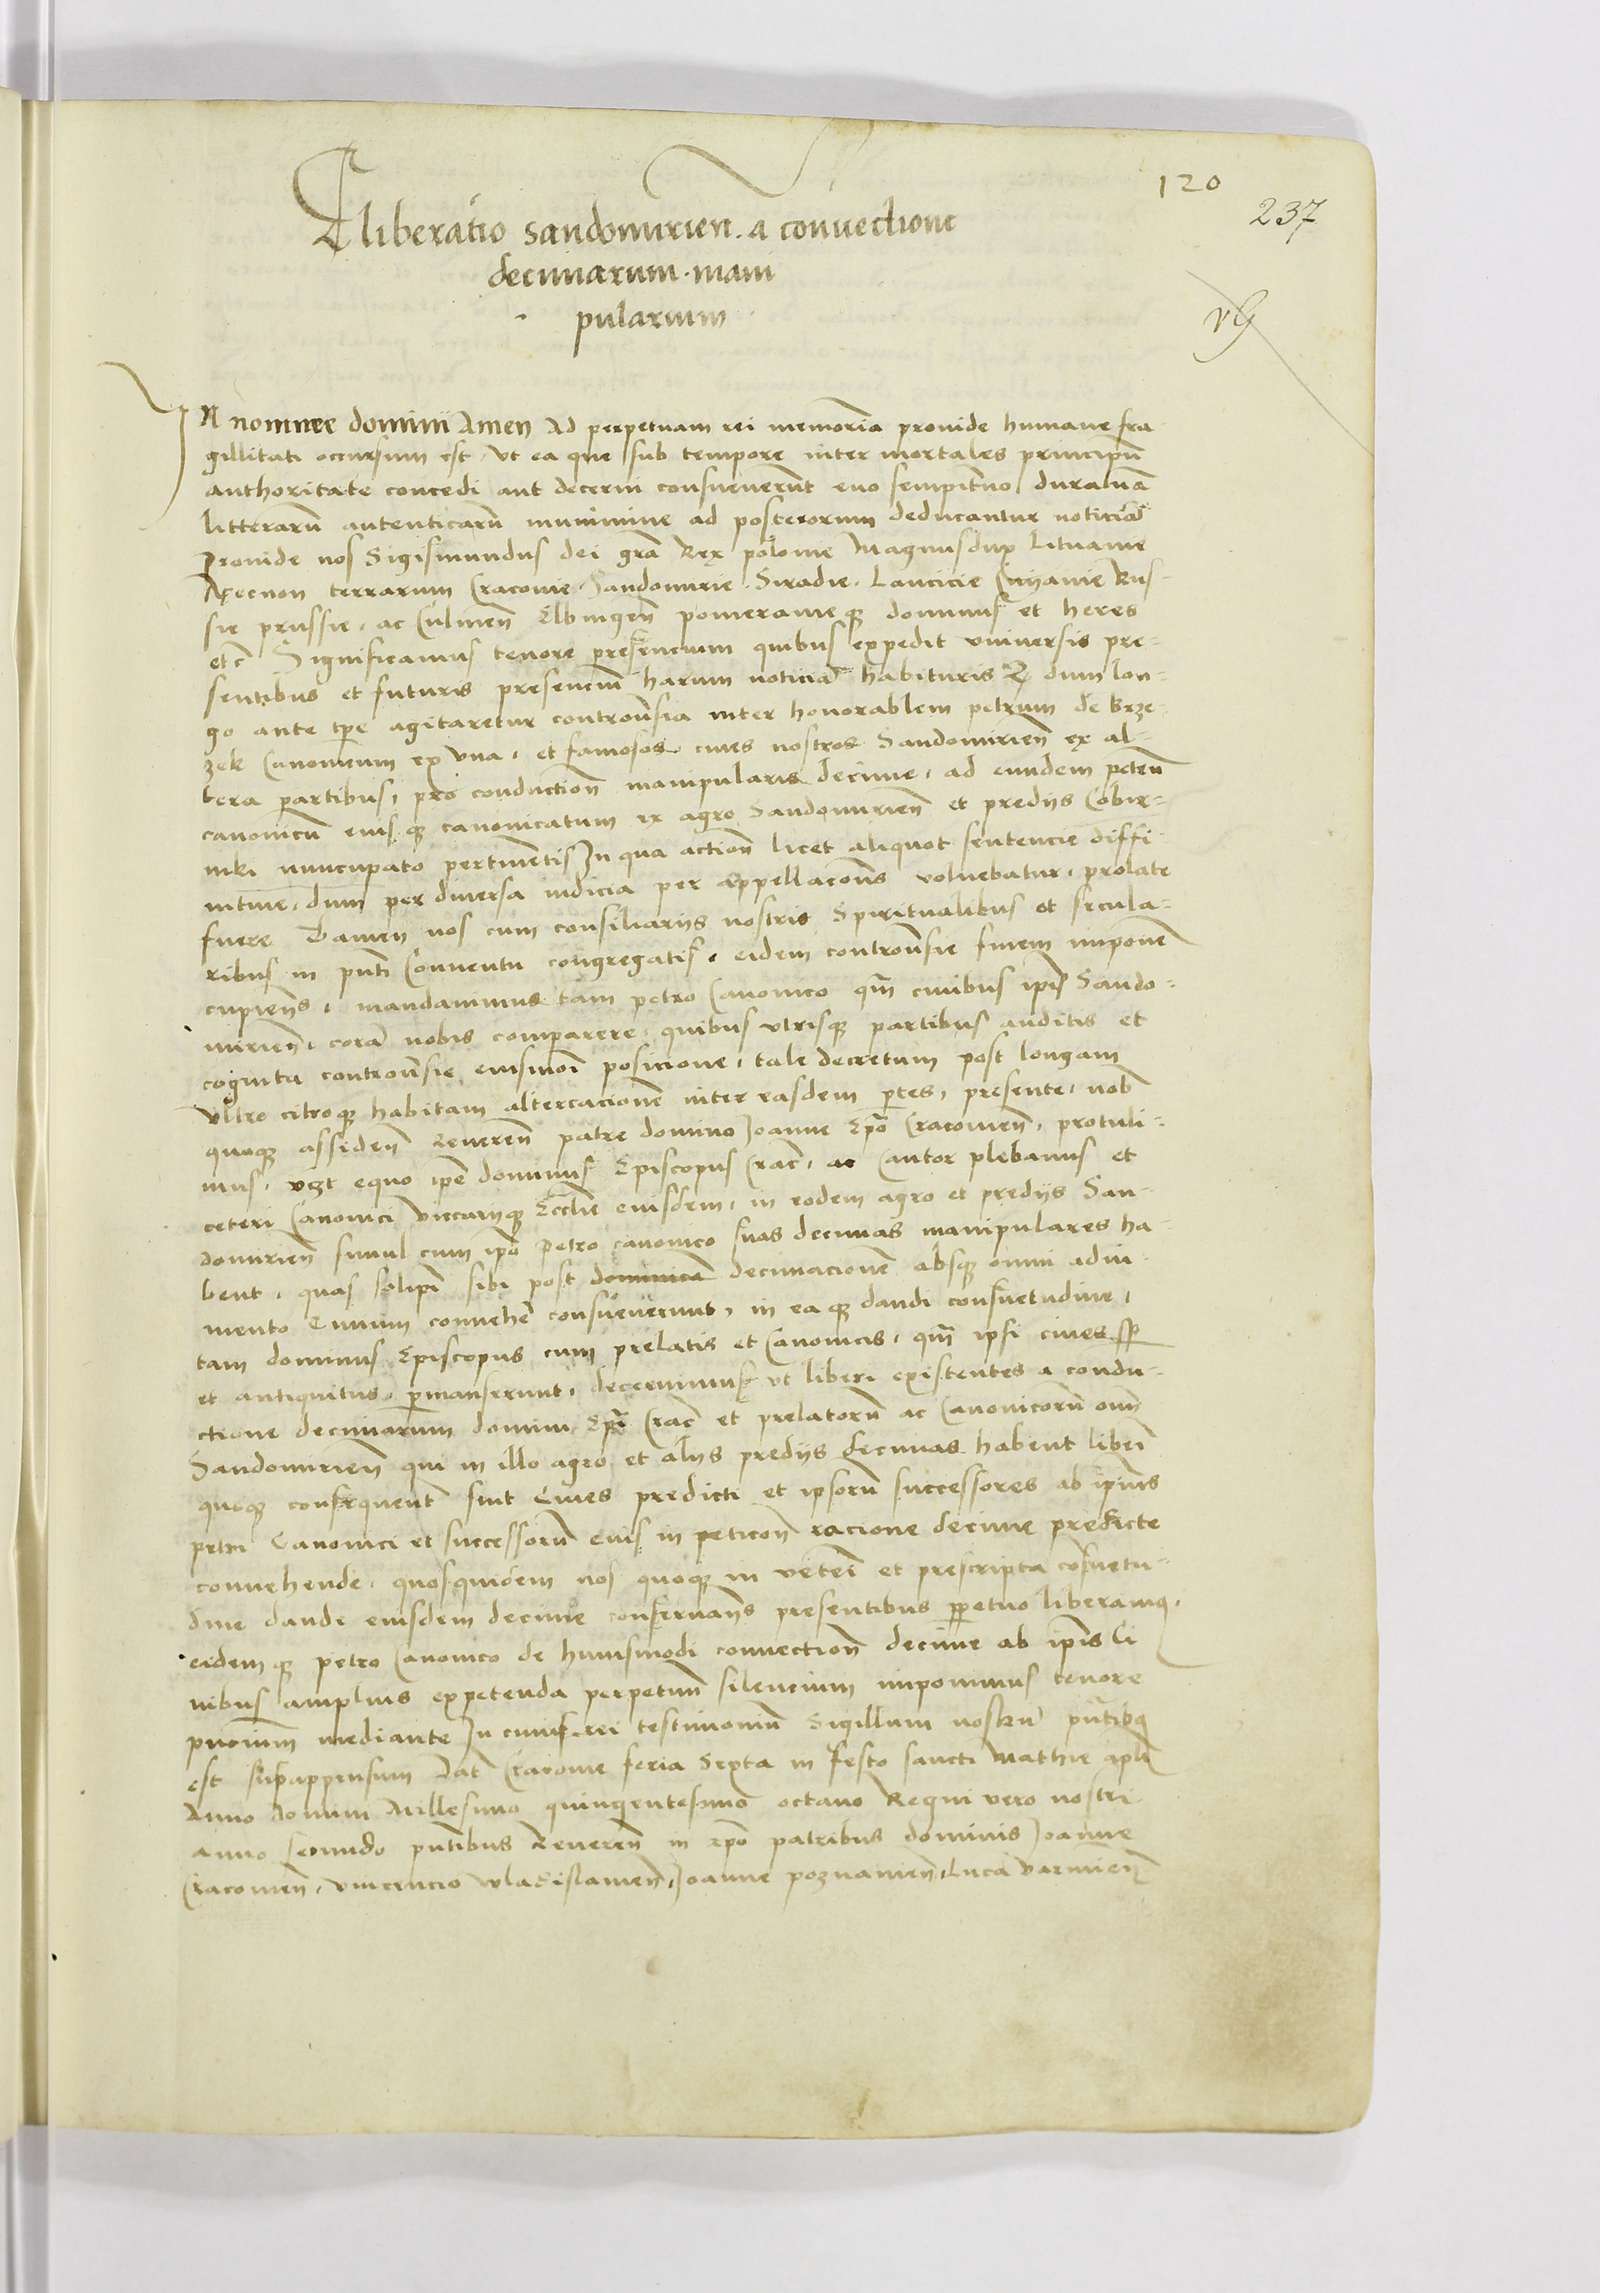 120
237
liberatio sandomirien. a convectione
decimarum mani
pularium
In nomine domini Amen Ad perpetuam rei memoria provide humane fra
gillitati occursum est, ut ea que sub tempore inter mortales principu
authoritate concedi aut decerni consueverunt evo sempiterno duratura
litteraru autenticaru munimine ad posterorum deducantur noticia
Proinde nos Sigismundus dei gra Rex polonie Magnusdux Lituanie
Necnon terrarum Cracovie Sandomirie Siradie Lancicie Cuyavie Rus-
sie prussie, ac Culmen Elbingen pomeranieq dominus et heres
etc Significamus tenore presencium quibus expedit universis pre-
sentibus et futuris presenciu harum noticia habituris Q dum lon-
go ante tpe agitaretur controversia inter honorablem petrum de Brze-
zek Canonicum ex una, et famosos cives nostros Sandomirien ex al-
tera partibus, pro conduction manipularis decime, ad eundem petru
canonicu eiusq canonicatum ex agro Sandomirien et prediis Cobir-
niki nuncupato pertinentis In qua action licet aliquot sentencie diffi-
nitive, dum per diversa iudicia per appellacons volvebatur, prolate
fuere Tamen nos cum consiliariis nostris Spiritualibus et secula-
ribus in pnti Conventu congregatis, eidem controversie finem imponer
cupiens, mandavimus tam petro Canonico qm civibus ipis Sando-
mirien, cora nobis comparere, quibus utrisq partibus auditis et
cognita controversie eiusmoi posicione, tale decretum post longam
Ultro citroq habitam altercacione inter easdem ptes, presente, nob
quoq assiden Reveren patre domino Joanne Epo Cracovien, protuli-
mus, vzt equo ipe dominus Episcopus Crac, ac Cantor plebanus et
ceteri Canonici vicariiq Ecclie eiusdem, in eodem agro et prediis San-
domirien simul cum ipo Petro canonico suas decimas manipulares ha-
bent, quas soli ipi sibi post decimacione absq omni adiu-
mento Civium convehere consueverunt, in eaq dandi consuetudine,
tam dominus Episcopus cum prelatis et Canonicis, qm ipsi cives
et antiquitus, pmanserunt, decernimus ut liberi existentes a condu-
ctione decimarum domini Epi Crac et prelatoru ac Canonicoru omn
Sandomirien qui in illo agro et aliis prediis decimas habent liberi
quoq consequent sint Cives predicti et ipsoru successores ab ipius
petri Canonici et successoru eius in peticon racione decime predicte
convehende, quosquidem nos quoq in veteri et prescripta consuetu-
dine dande eiusdem decime conservans presentibus ppetuo liberamus,
eidemq petro Canonico de huiusmodi convection decime ab ipis Ci
vibus amplius expetenda perpetuu silencium imponimus tenore
pncium mediante In cuius rei testimoniu Sigillum nostru pntibq
est subappensum Dat Cracovie feria Sexta in festo sancti Mathie apli
Anno domini Millesimo quingentesimo octavo Regni vero nostri
anno secundo pntibus Reveren in xpo patribus dominis Joanne
Cracovien, Vincencio wladislavien, Joanne poznanien, Luca Varmien